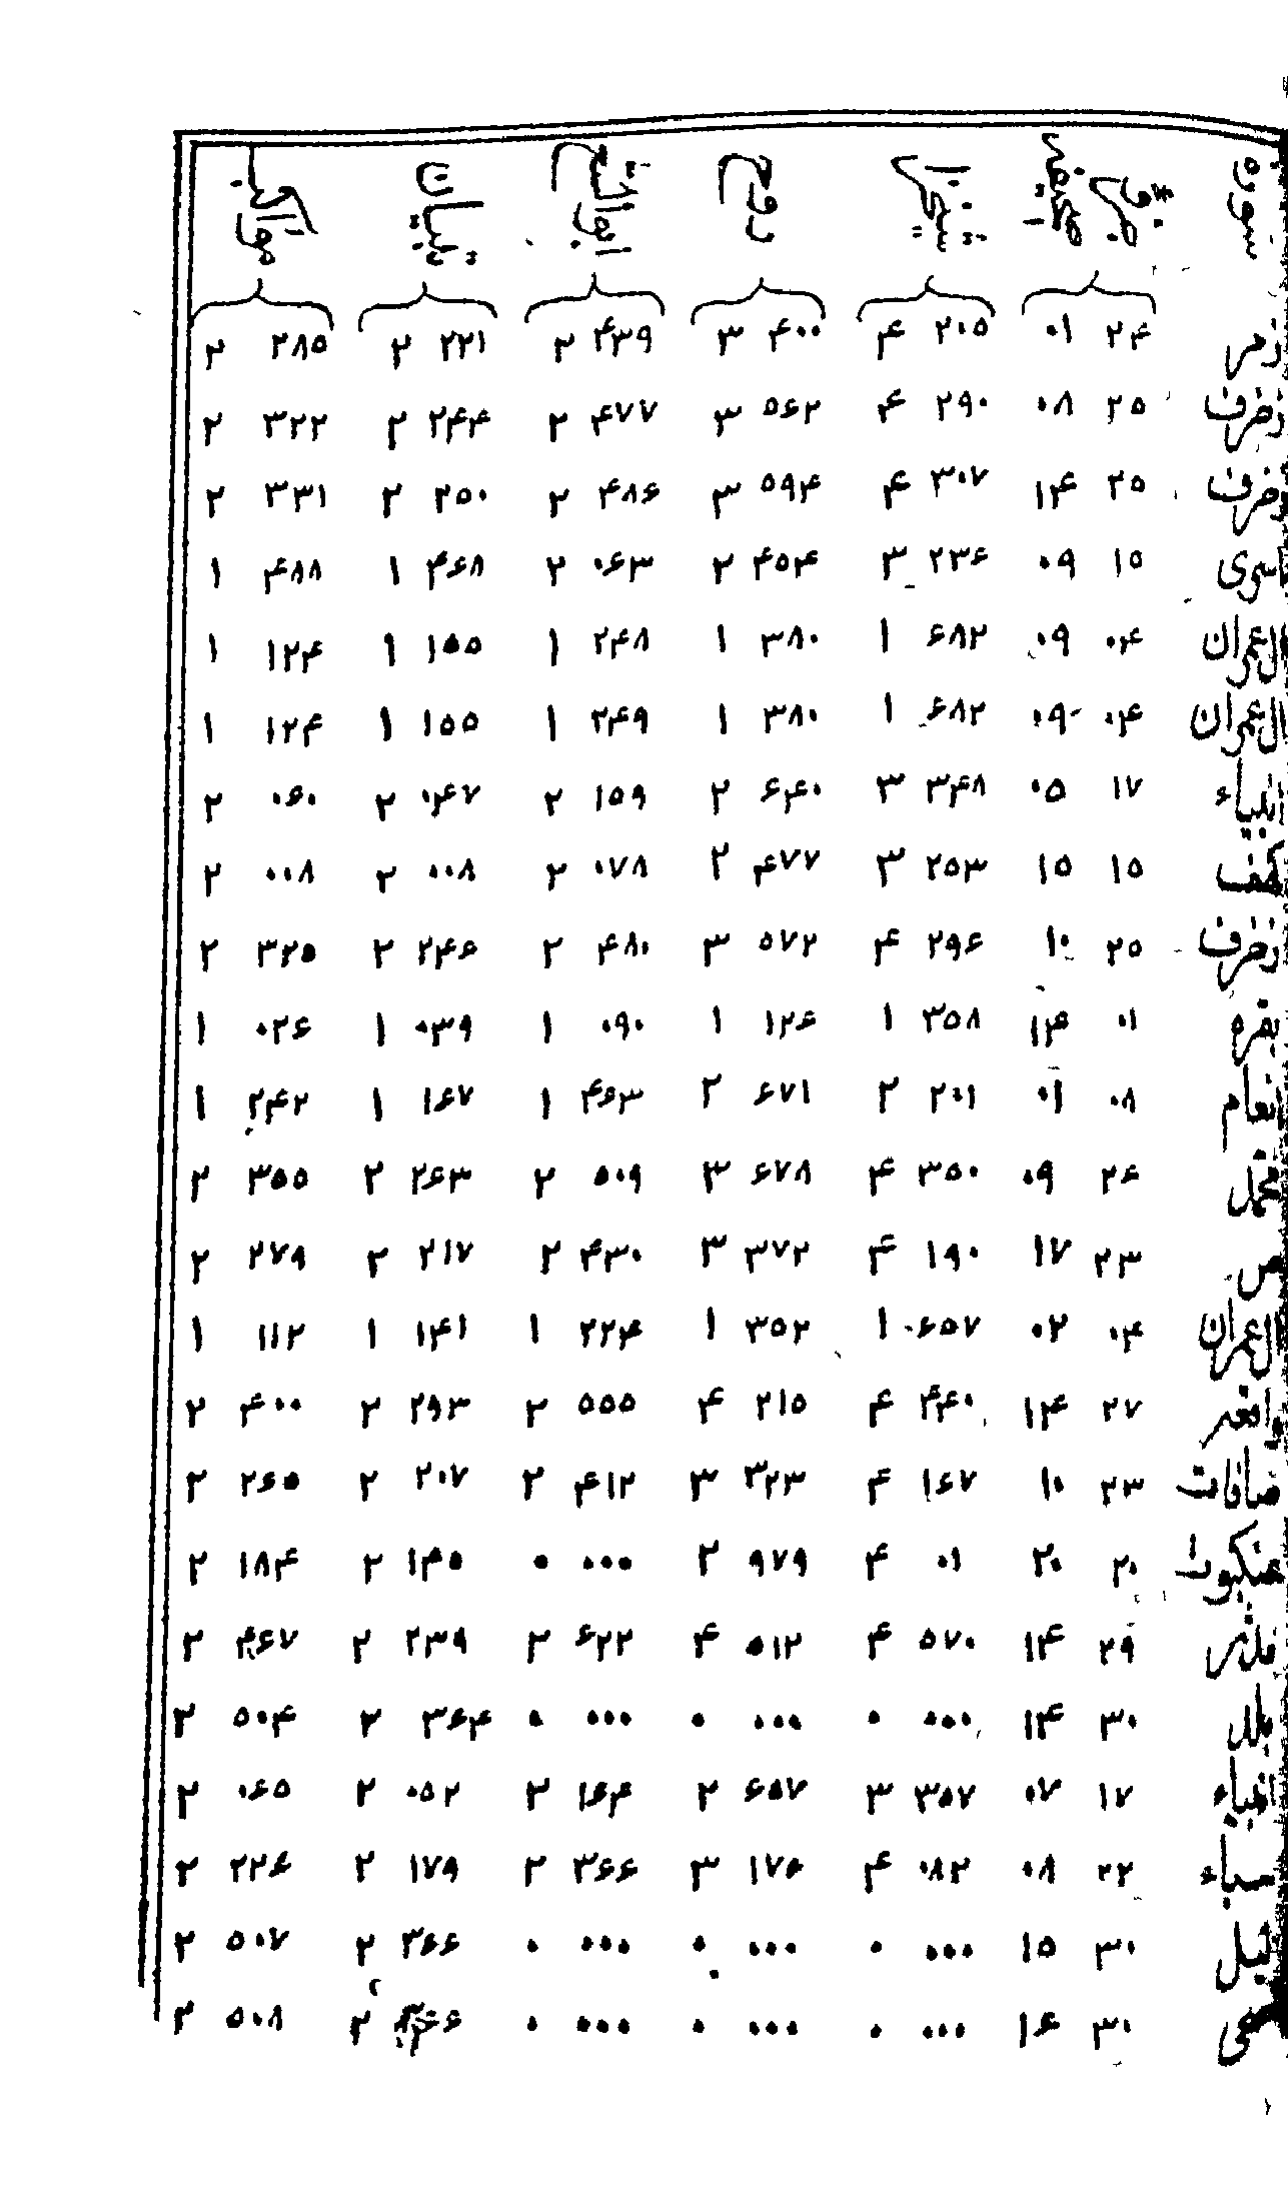 سوره
زمر ۲۴ ۰۱ ۲۰۵ ۴ ۴۰۰ ۳ ۴۳۹ ۲ ۲۲۱ ۲ ۲۸۵ ۲
زخرف ۲۵ ۰۸ ۲۹۰ ۴ ۵۶۲ ۳ ۴۷۷ ۲ ۲۴۴ ۲ ۳۲۲ ۲
زخرف ۲۵ ۱۴ ۳۰۷ ۴ ۵۹۴ ۳ ۴۸۶ ۲ ۲۵۰ ۲ ۳۳۱ ۲
اسری ۱۵ ۰۹ ۲۳۶ ۳ ۴۵۴ ۲ ۰۶۳ ۲ ۴۶۸ ۱ ۴۸۸ ۱
ال عمران ۰۴ ۰۹ ۶۸۲ ۱ ۳۸۰ ۱ ۲۴۸ ۱ ۱۵۵ ۱ ۱۲۴ ۱
ال عمران ۰۴ ۰۹ ۶۸۲ ۱ ۳۸۰ ۱ ۲۴۹ ۱ ۱۵۵ ۱ ۱۲۴ ۱
انبیاء ۱۷ ۰۵ ۳۴۸ ۳ ۶۴۰ ۲ ۱۵۹ ۲ ۰۴۷ ۲ ۰۶۰ ۲
کهف ۱۵ ۱۵ ۲۵۳ ۳ ۴۷۷ ۲ ۰۷۸ ۲ ۰۰۸ ۲ ۰۰۸ ۲
زخرف ۲۵ ۱۰ ۲۹۶ ۴ ۵۷۲ ۳ ۴۸۰ ۲ ۲۴۶ ۲ ۳۲۵ ۲
بقره ۰۱ ۱۴ ۳۵۸ ۱ ۱۲۶ ۱ ۰۹۰ ۱ ۰۳۹ ۱ ۰۲۶ ۱
انعام ۰۸ ۰۱ ۲۰۱ ۲ ۶۷۱ ۲ ۴۶۳ ۱ ۱۶۷ ۱ ۲۴۲ ۱
محمد ۲۶ ۰۹ ۳۵۰ ۴ ۶۷۸ ۳ ۵۰۹ ۲ ۲۶۳ ۲ ۳۵۵ ۲
ص ۲۳ ۱۷ ۱۹۰ ۴ ۳۷۲ ۳ ۴۳۰ ۲ ۲۱۷ ۲ ۲۷۹ ۲
ال عمران ۰۴ ۰۲ ۶۵۷ ۱ ۳۵۲ ۱ ۲۲۴ ۱ ۱۴۱ ۱ ۱۱۲ ۱
واقعه ۲۷ ۱۴ ۴۴۰ ۴ ۲۱۵ ۴ ۵۵۵ ۲ ۲۹۳ ۲ ۴۰۰ ۲
صافات ۲۳ ۱۰ ۱۶۷ ۴ ۳۲۳ ۳ ۴۱۲ ۲ ۲۰۷ ۲ ۲۶۵ ۲
عنکبوت ۲۰ ۲۰ ۰۱ ۴ ۹۷۹ ۲ ۰۰۰ ۰ ۱۴۵ ۲ ۱۸۴ ۲
مدثر ۲۹ ۱۴ ۵۷۰ ۴ ۵۱۲ ۴ ۶۲۲ ۲ ۲۳۹ ۲ ۴۶۷ ۲
بلد ۳۰ ۱۴ ۰۰۰ ۰ ۰۰۰ ۰ ۰۰۰ ۰ ۳۶۴ ۲ ۵۰۴ ۲
انبیاء ۱۷ ۰۷ ۳۵۷ ۳ ۶۵۷ ۲ ۱۶۴ ۲ ۰۵۲ ۲ ۰۶۵ ۲
سباء ۲۲ ۰۸ ۰۸۲ ۴ ۱۷۶ ۳ ۳۶۶ ۲ ۱۷۹ ۲ ۲۲۶ ۲
لیل ۳۰ ۱۵ ۰۰۰ ۰ ۰۰۰ ۰ ۰۰۰ ۰ ۳۶۶ ۲ ۵۰۷ ۲
ضحی ۳۰ ۱۶ ۰۰۰ ۰ ۰۰۰ ۰ ۰۰۰ ۰ ۳۶۶ ۲ ۵۰۸ ۲